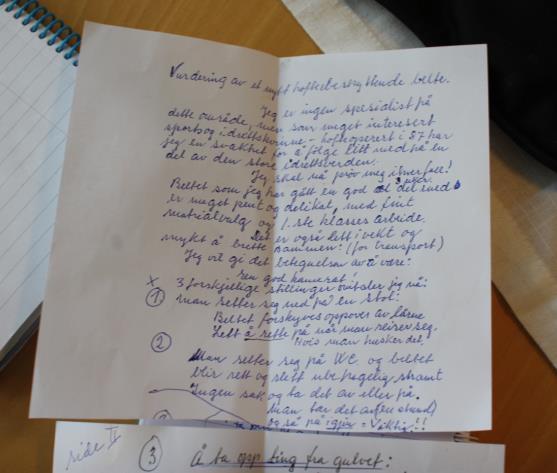 Vurdering av et nytt hoftebeskyttende belte.
Jeg er ingen spesialist på
dette område, men som meget interesert
sports og idrettskvinne, - hofteoperert i 87 har
jeg en svakhet for å følge litt med på en
del av den store idrettsverden.
Jeg skal nå prøv meg i hverfall!
3 uker
Beltet som jeg har gått en god del med
er meget pent og delikat, med fint
matrialvalg og 1.ste klasses arbeide.
Det er også lett i vekt og
mykt å brette sammen! (for transport)
Jeg vil gi det betegnelsen av å være:
"en god kamerat"!
x 3 forskjelige stillinger omtaler jeg nå:
① man setter seg ned på en stol:
Beltet forskyves oppover av lårene
Lett å rette på når man reiser seg.
Hvis man husker det!
② Man setter seg på WC. og beltet
blir rett og slett ubehagelig stramt
Ingen sak og ta det av eller på.
man tar det av
og så på igjen = Viktig!!
side II
③ Å ta opp ting fra gulvet: